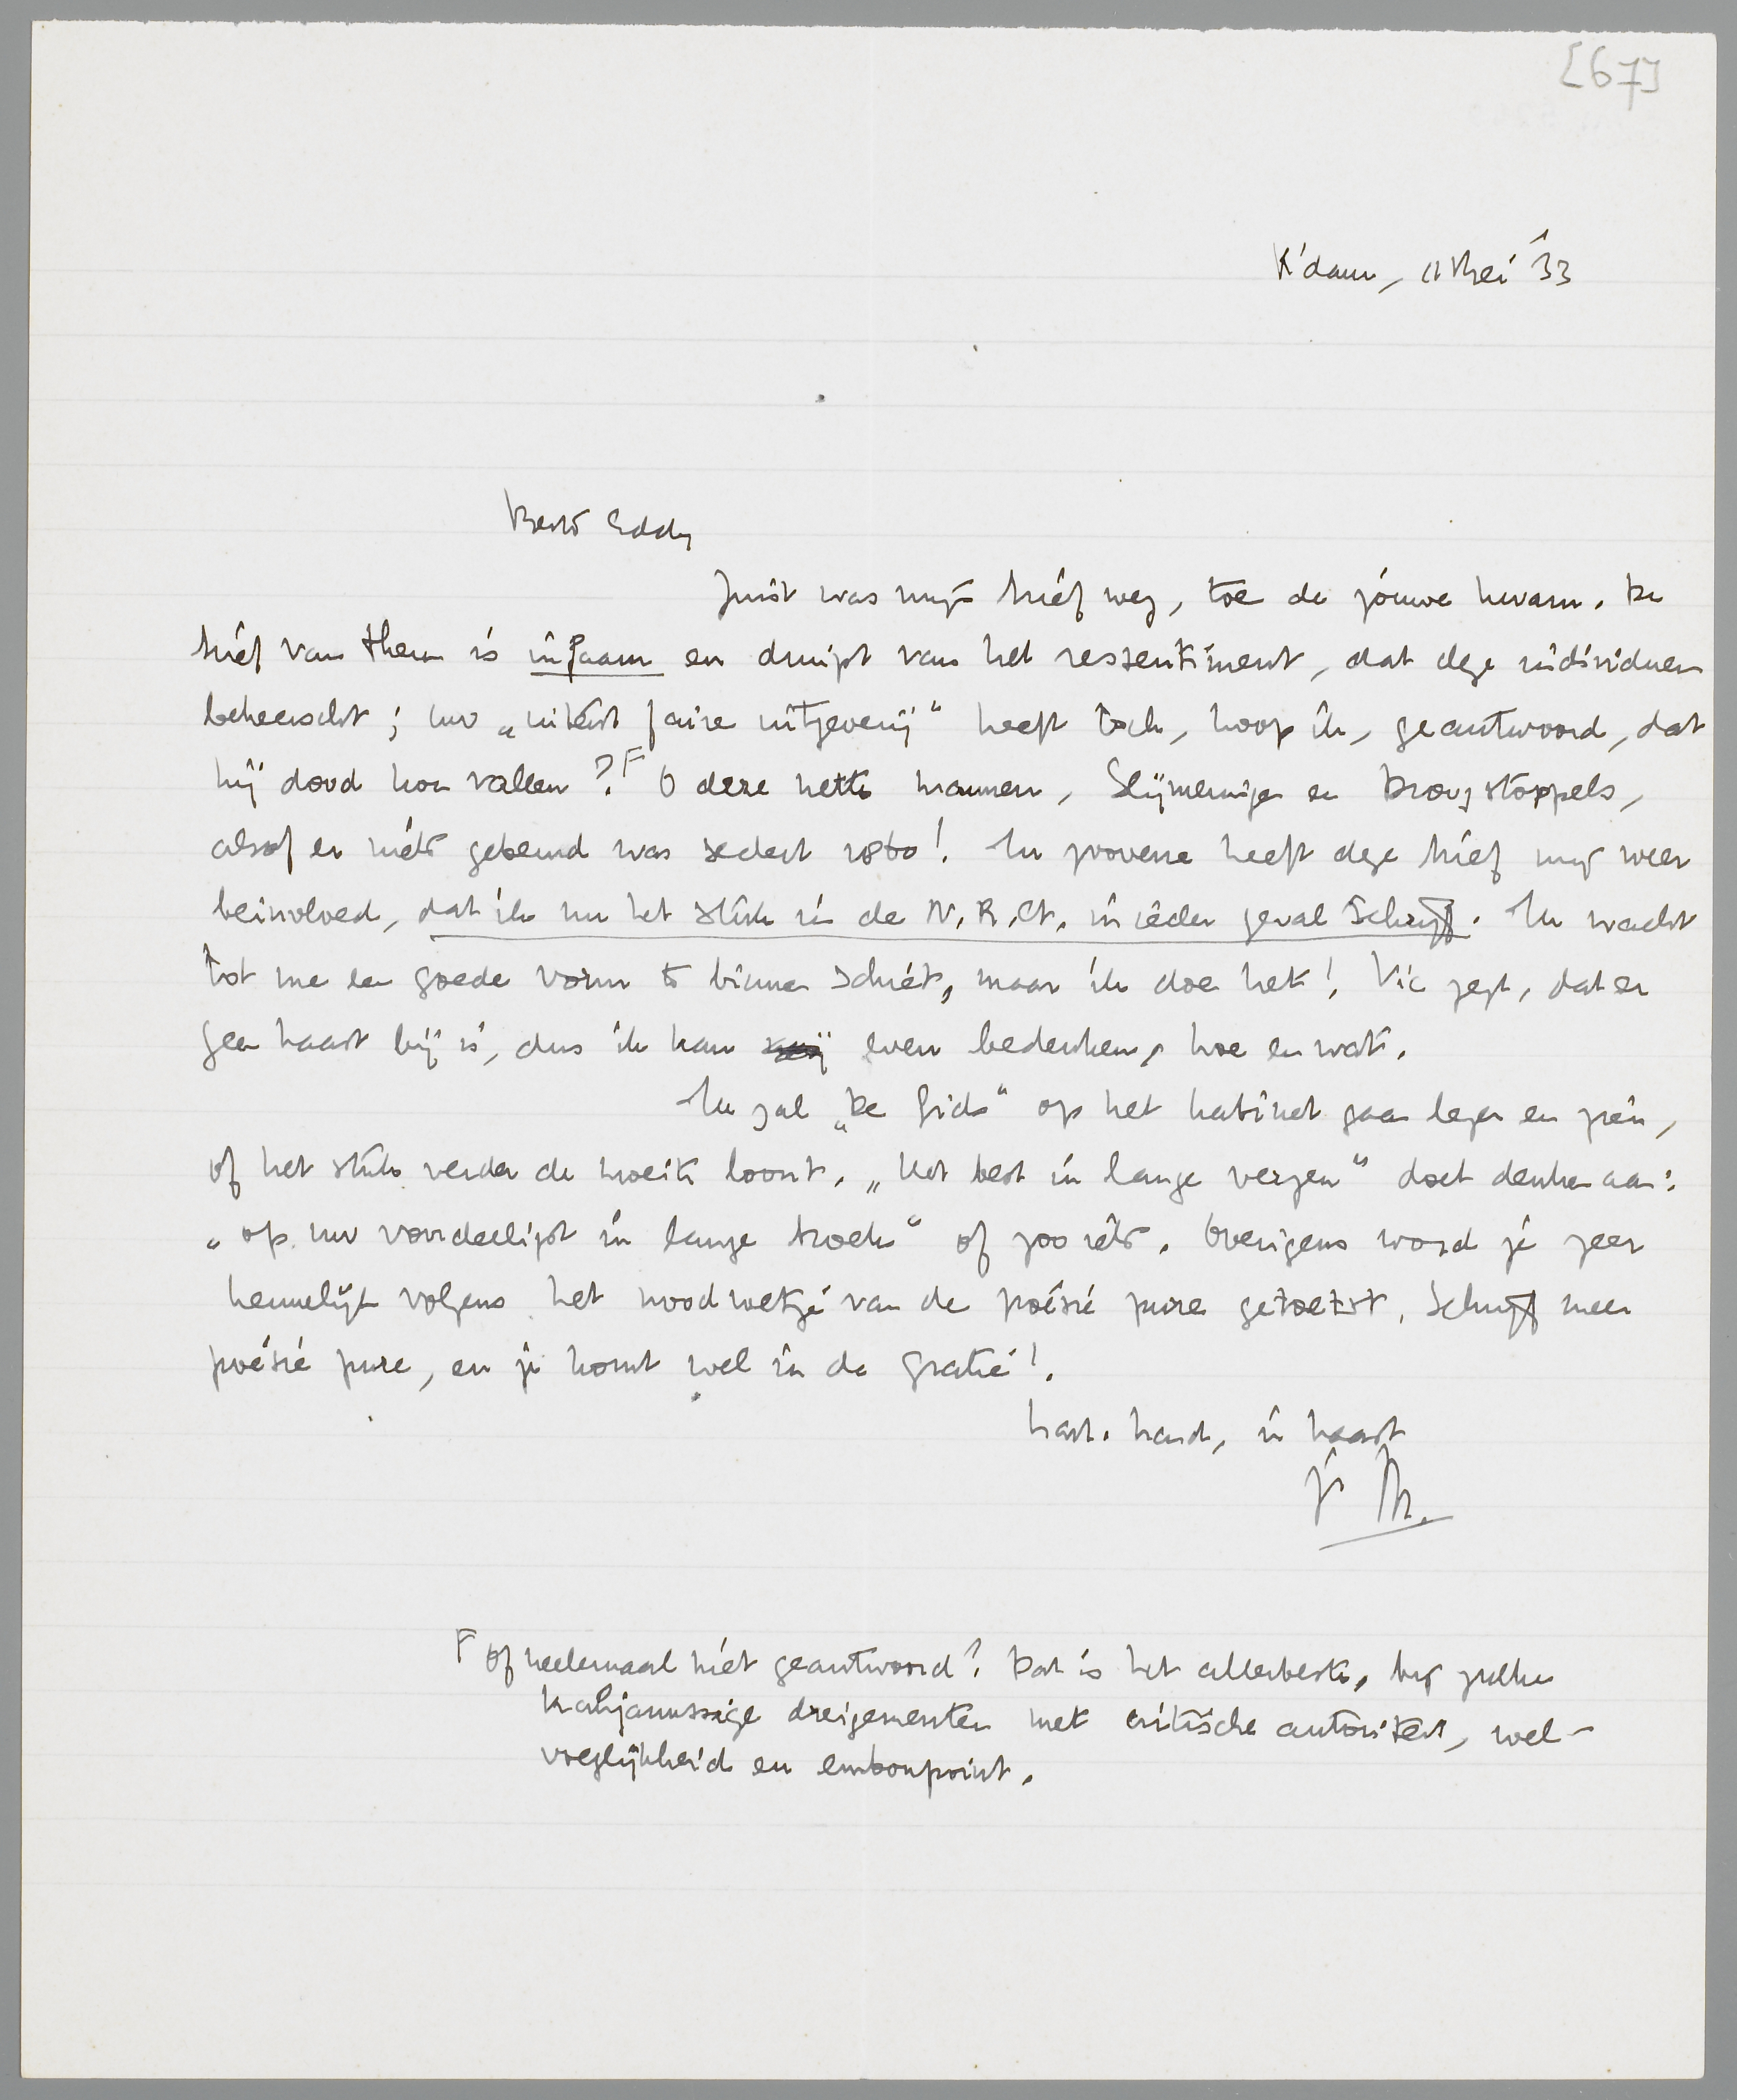 [67]
R'dam, 11 Mei '33
Beste Eddy
Juist was mijn brief weg, toen de jouwe kwam. De
brief van Chen is infaam en druipt van het ressentiment, dat deze individuen
beheerscht; uw „uiterst faire uitgeverij“ heeft toch, hoop ik, geantwoord, dat
hij dood kon vallen?F O deze nette mannen, Slijmeringen en Droogstoppels,
alsof er niets gebeurd was sedert 1860! In zooverre heeft deze brief mij weer
beinvloed, dat ik nu het stuk in de N.R.Ct. in ieder geval schrijf. Ik wacht
tot me een goede vorm te binnen schiet, maar ik doe het! Vic zegt, dat er
geen haast bij is, dus ik kan even bedenken, hoe en wat.
Ik zal „De Gids“ op het kabinet gaan lezen en zien,
of het stuk verder de moeite loont. „Het best in lange verzen“ doet denken aan:
„op uw voordeeligst in lange broek“ of zoo iets. Overigens word je zeer
kennelijk volgens het noodwetje van de poésie pure getoetst. Schrijf meer
poésie pure, en je komt wel in de gratie!
hart. hand, in haast
je M.
F Of heelemaal niet geantwoord? Dat is het allerbeste, bij zulke
dreigementen met critische autoriteit, wel-
voeglijkheid en embonpoint.